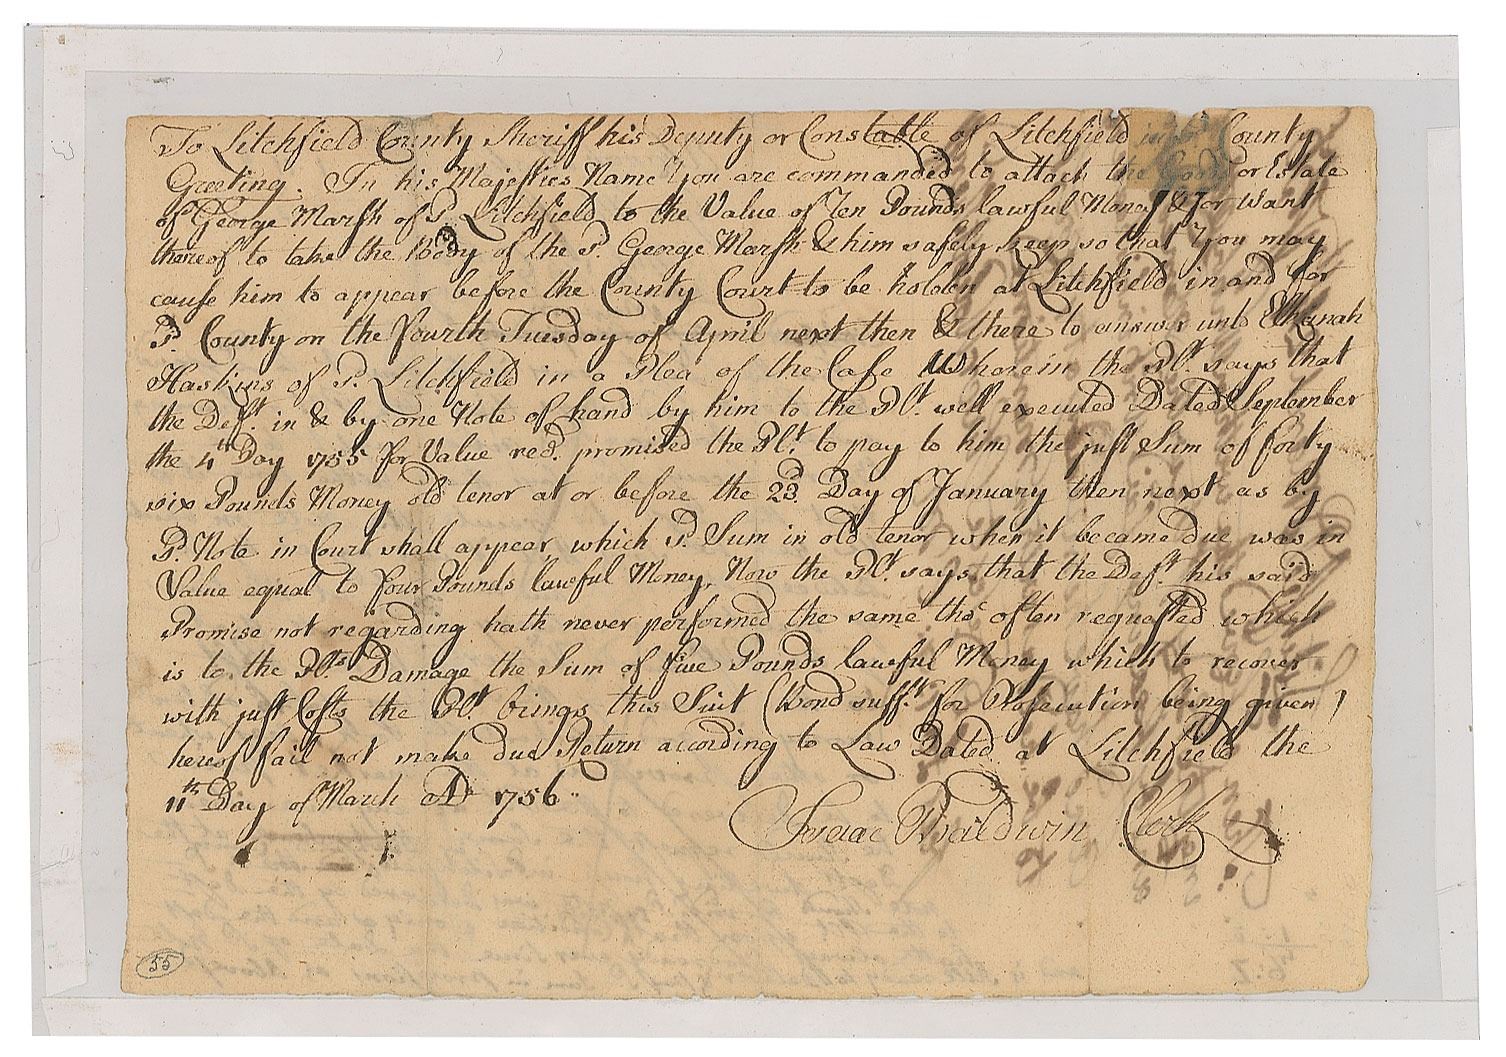 To Litchfield County Sheriff his Deputy or Constable of Litchfield in sd County
Greeting. In his Majesties Name You are commanded to attach the Goods or Estate
of George Marsh of sd. Litchfield to the Value of Ten Pounds lawful Money & For want
thereof to take the Body of the sd. George Marsh & him safely keep so that You may
cause him to appear before the County Court to be holden at Litchfield in and for
sd. County on the Fourth Tuesday of April next then & there to answer unto Elkanah
Haskins of sd. Litchfield in a Plea of the Case Wherein the Plt. says that
the Deft. in & by one Note of hand by him to the Plt. well executed Dated September
the 4th Day 1755 for Value recd. promised the Plt. to pay to him the just Sum of forty
six Pounds Money old tenor at or before the 23d. Day of January then next as by
sd. Note in Court shall appear which sd. Sum in old tenor when it became due was in
Value equal to four Pounds lawful Money, Now the Plt. says that the Deft. his said
Promise not regarding hath never performed the same tho' often requested which
is to the Plts. Damage the Sum of five Pounds lawful Money which to recover
with just Costs the Plt. brings this Suit (Bond sufft. for Prosecution being given)
hereof fail not make due Return according to Law Dated at Litchfield the
11th Day of March AD 1756
Isaac Baldwin Clerk
55